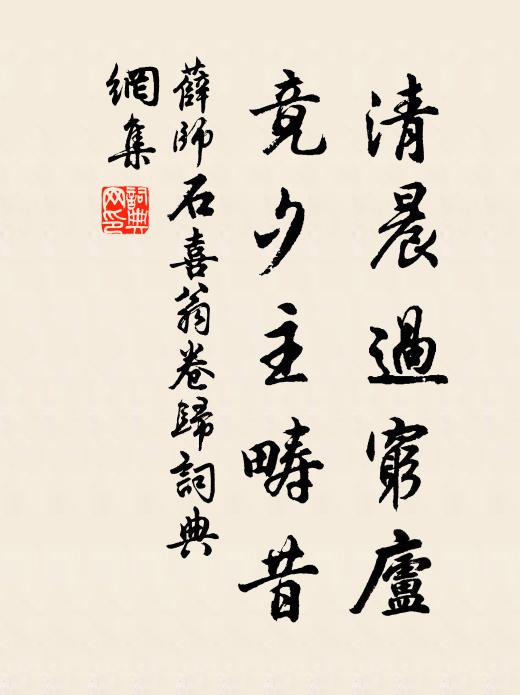 清晨過窮廬
竟夕主疇昔
薛師石喜翁卷歸詞典
網集
詞典
网印